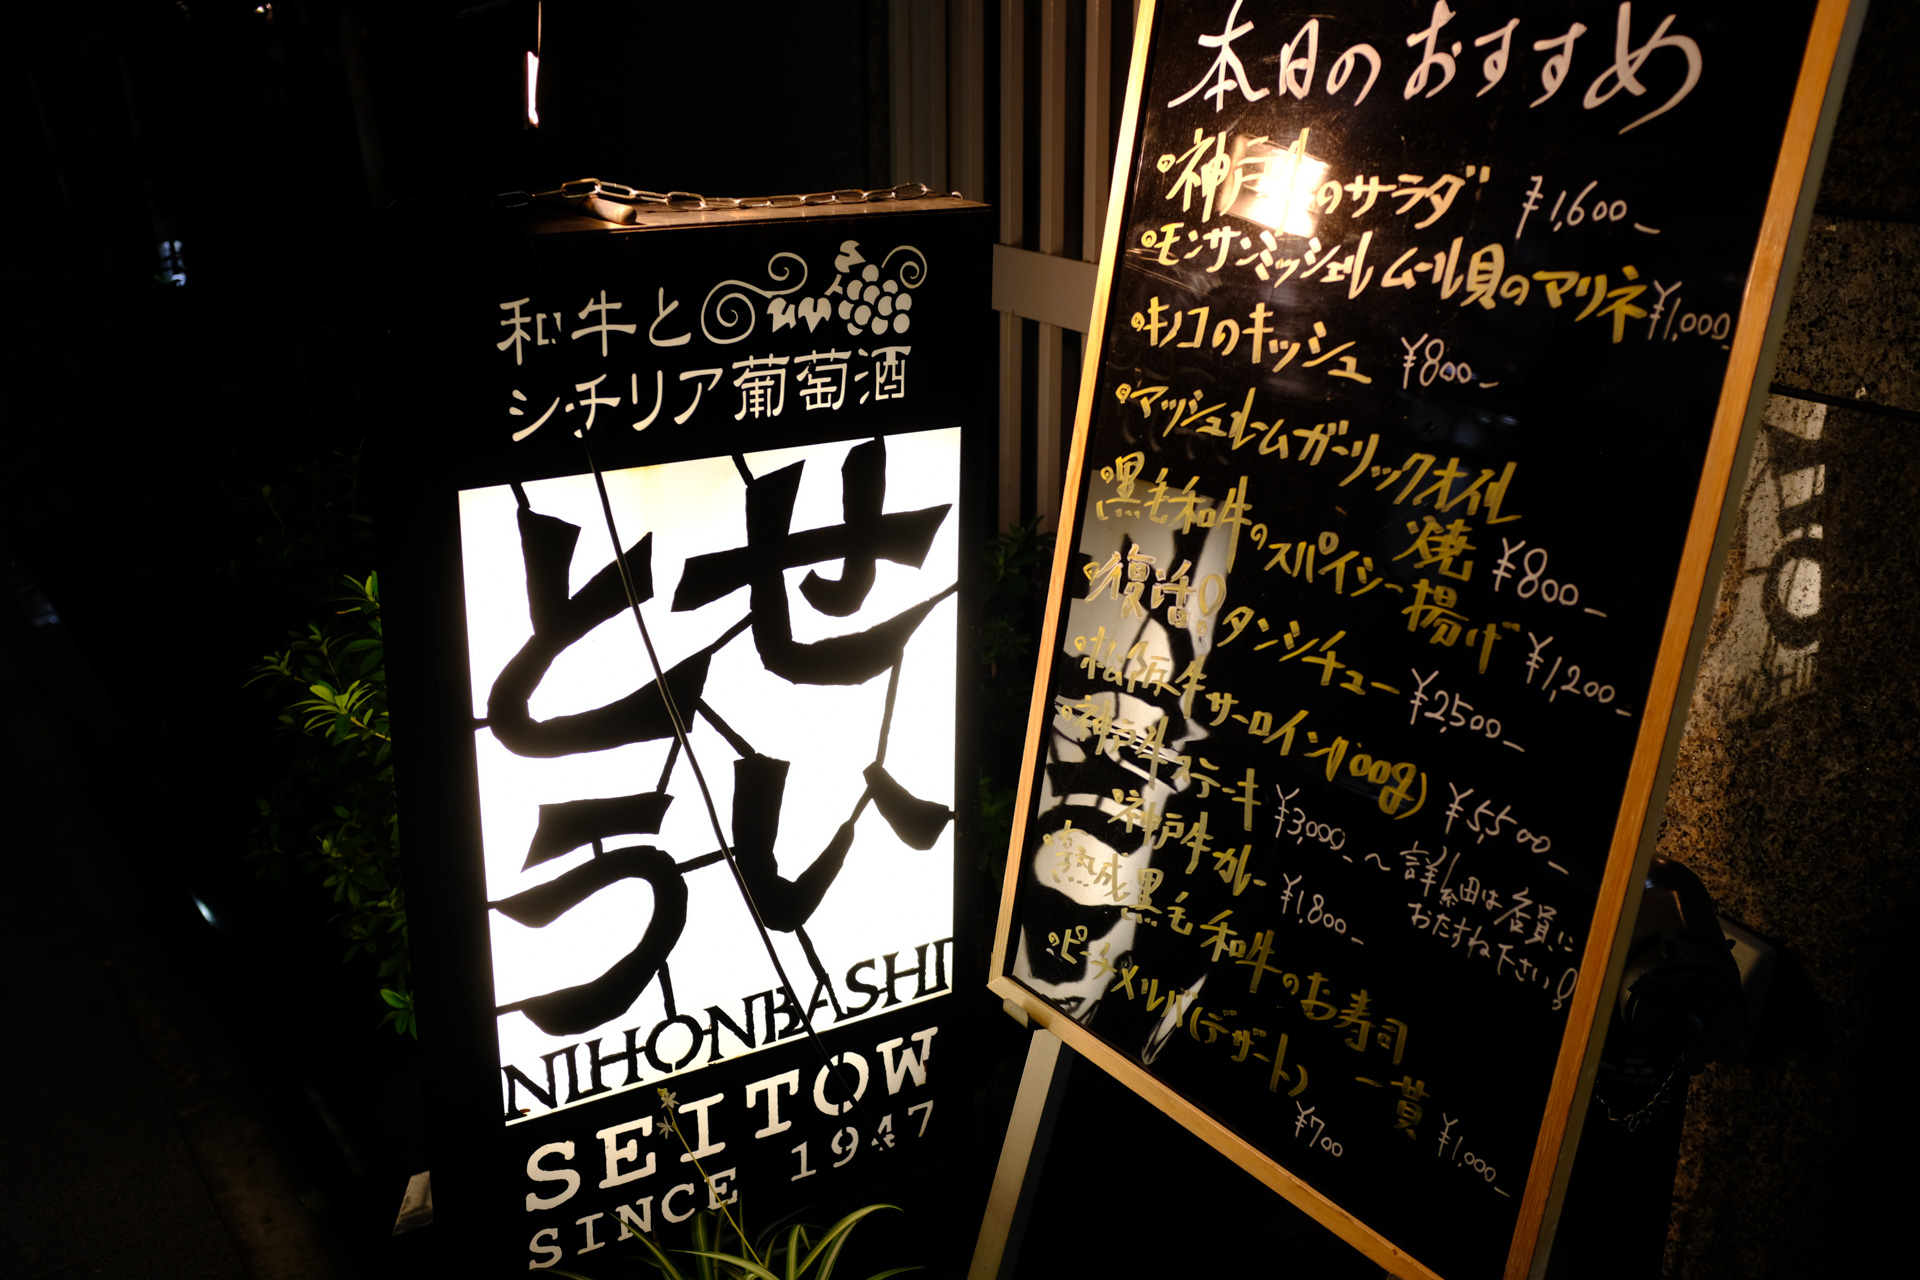 和牛と
シチリア葡萄酒
せい
とう
NIHONBASHI
SEITOW
SINCE 1947
本日のおすすめ
神戸牛のサラダ ¥1,600-
モンサンミッシェルムール貝のマリネ ¥1,000-
キノコのキッシュ ¥800-
マッシュルームガーリックオイル
焼 ¥800-
黒毛和牛のスパイシー揚げ ¥1,200-
復活!タンシチュー ¥2500-
松阪牛サーロイン(100g) ¥5,500-
神戸牛ステーキ ¥3,000-〜詳細は店員に
おたずね下さい!
神戸牛カレー ¥1,800-
熟成黒毛和牛のお寿司 一貫 ¥1,000-
ピーチメルバ(デザート) ¥700